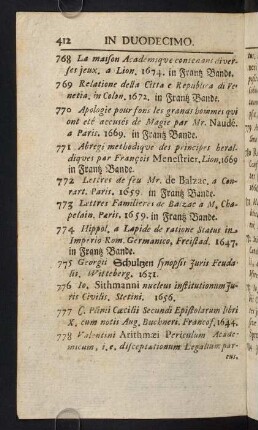 412 IN DUODECIMO.
768 La maison Academique contenant diver-
ses jeux, a Lion. 1674. in Frantz Bande.
769 Relatione della Citta e Republica di Ve-
netia, in Colon. 1672. in Frantz Bande.
770 Apologie pour tous les grands hommes qui
ont eté accusés de Magie par Mr. Naudé.
a Paris. 1669. in Frantz Bande.
771 Abregi methodique des principes heral-
diques par François Menestrier, Lion. 1669
in Frantz Bande.
772 Lettres de feu Mr. de Balzac, a Con-
rart. Paris. 1659. in Frantz Bande.
773 Lettres Familieres de Balzac a M. Cha-
pelain. Paris. 1659. in Frantz Bande.
774 Hippol. a Lapide de ratione Status in
Imperio Rom. Germanico, Freistad. 1647.
in Frantz Bande.
775 Georgii Schultzen synopsis Juris Feuda-
lis. Witteberg. 1631.
776 Io. Sithmanni nucleus institutionum Ju-
ris Civilis, Stetini. 1656.
777 C. Plinii Cæcilii Secundi Epistolarum libri
X. cum notis Aug. Buchneri. Francof. 1644.
778 Valentini Arithmæi Periculum Acade-
micum, i. e. disceptationum Legalium par-
eus.